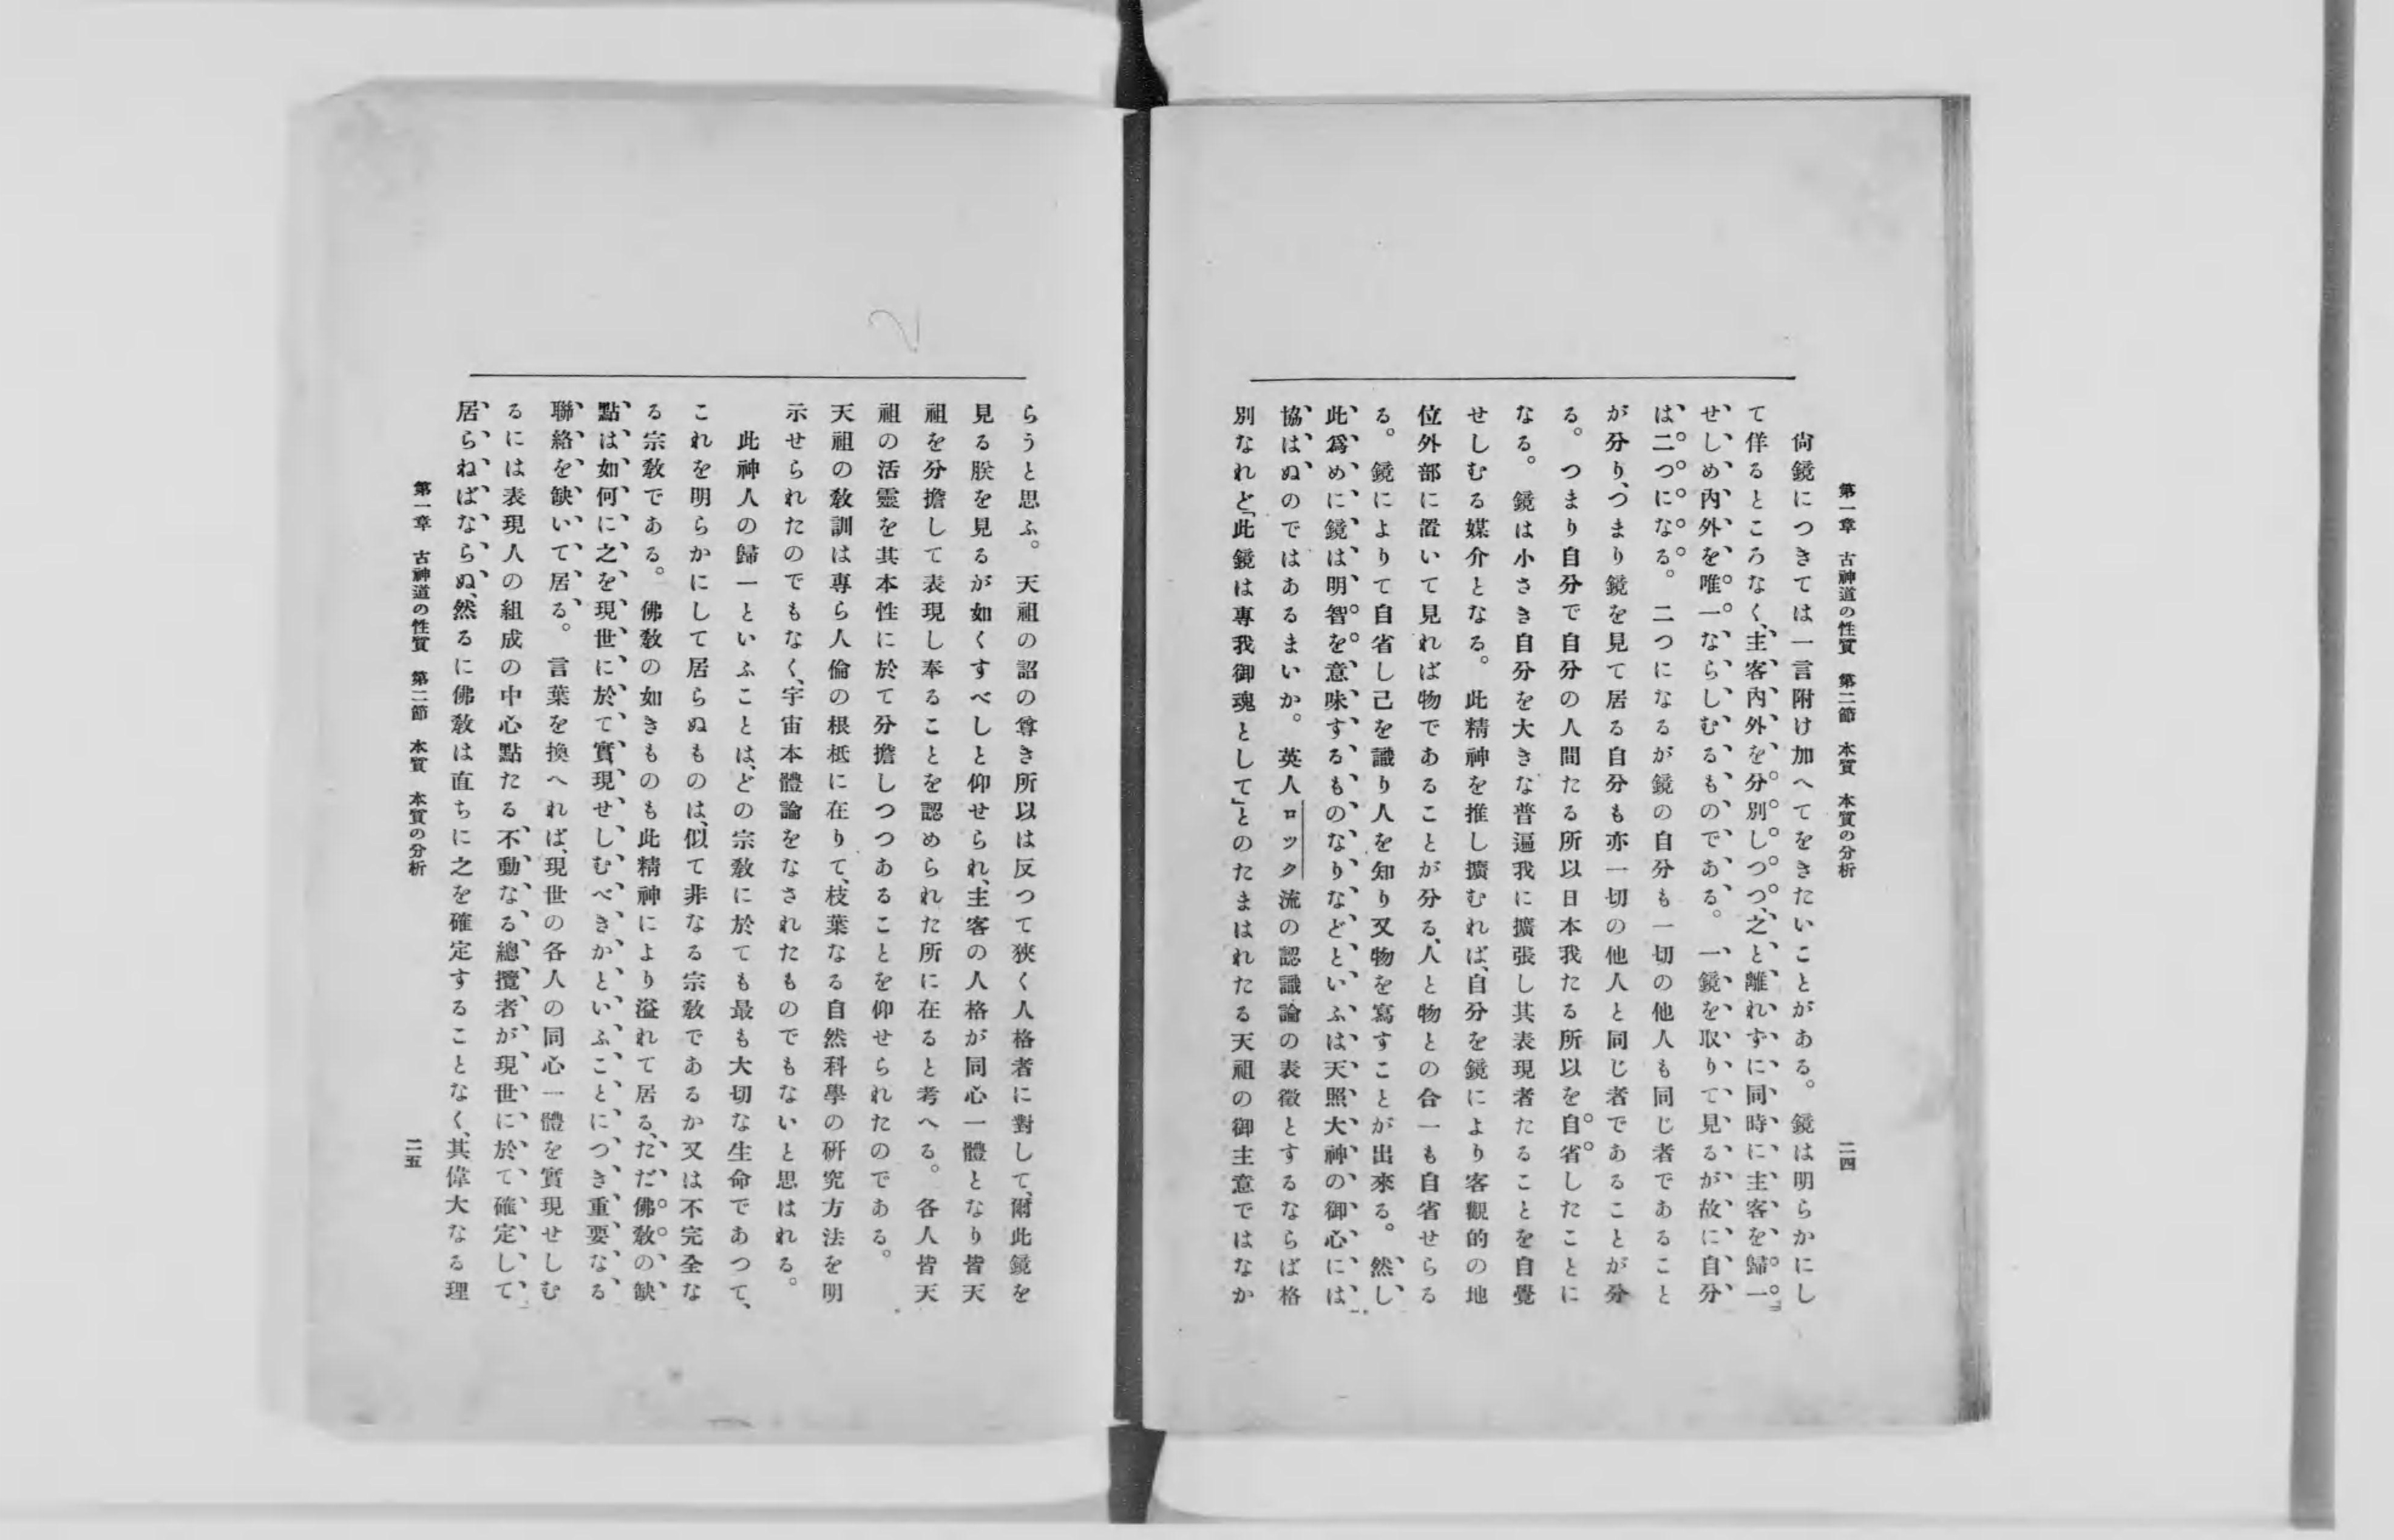 第一章　古神道の性質　第二節　本質　本質の分析
二四
尙鏡につきては一言附け加へてをきたいことがある。鏡は明らかにし
て佯るところなく、主客內外を分別しつつ、之と離れずに同時に主客を歸一
せしめ內外を唯一ならしむるものである。一鏡を取りて見るが故に自分
は二つになる。二つになるが鏡の自分も一切の他人も同じ者であること
が分り、つまり鏡を見て居る自分も亦一切の他人と同じ者であることが分
る。つまり自分で自分の人間たる所以日本我たる所以を自省したことに
なる。鏡は小さき自分を大きな普遍我に擴張し其表現者たることを自覺
せしむる媒介となる。此精神を推し擴むれば、自分を鏡により客觀的の地
位外部に置いて見れば物であることが分る、人と物との合一も自省せらる
る。鏡によりて自省し己を識り人を知り又物を寫すことが出來る。然し
此爲めに鏡は明智を意味するものなりなどといふは天照大神の御心には
協はぬのではあるまいか。英人ロック流の認識論の表徵とするならば格
別なれど「此鏡は專我御魂として」とのたまはれたる天祖の御主意ではなか
らうと思ふ。天祖の詔の尊き所以は反つて狹く人格者に對して、爾此鏡を
見る朕を見るが如くすべしと仰せられ、主客の人格が同心一體となり皆天
祖を分擔して表現し奉ることを認められた所に在ると考へる。各人皆天
祖の活靈を其本性に於て分擔しつつあることを仰せられたのである。
天祖の敎訓は專ら人倫の根柢に在りて、枝葉なる自然科學の硏究方法を明
示せられたのでもなく、宇宙本體論をなされたものでもないと思はれる。
此神人の歸一といふことは、どの宗敎に於ても最も大切な生命であつて、
これを明らかにして居らぬものは、似て非なる宗敎であるか又は不完全な
る宗敎である。佛敎の如きものも此精神により溢れて居る、ただ佛敎の缺
點は如何に之を現世に於て實現せしむべきかといふことにつき重要なる
聯絡を缺いて居る。言葉を換へれば、現世の各人の同心一體を實現せしむ
るには表現人の組成の中心點たる不動なる總攬者が現世に於て確定して
居らねばならぬ、然るに佛敎は直ちに之を確定することなく、其偉大なる理
第一章　古神道の性質　第二節　本質　本質の分析
二五